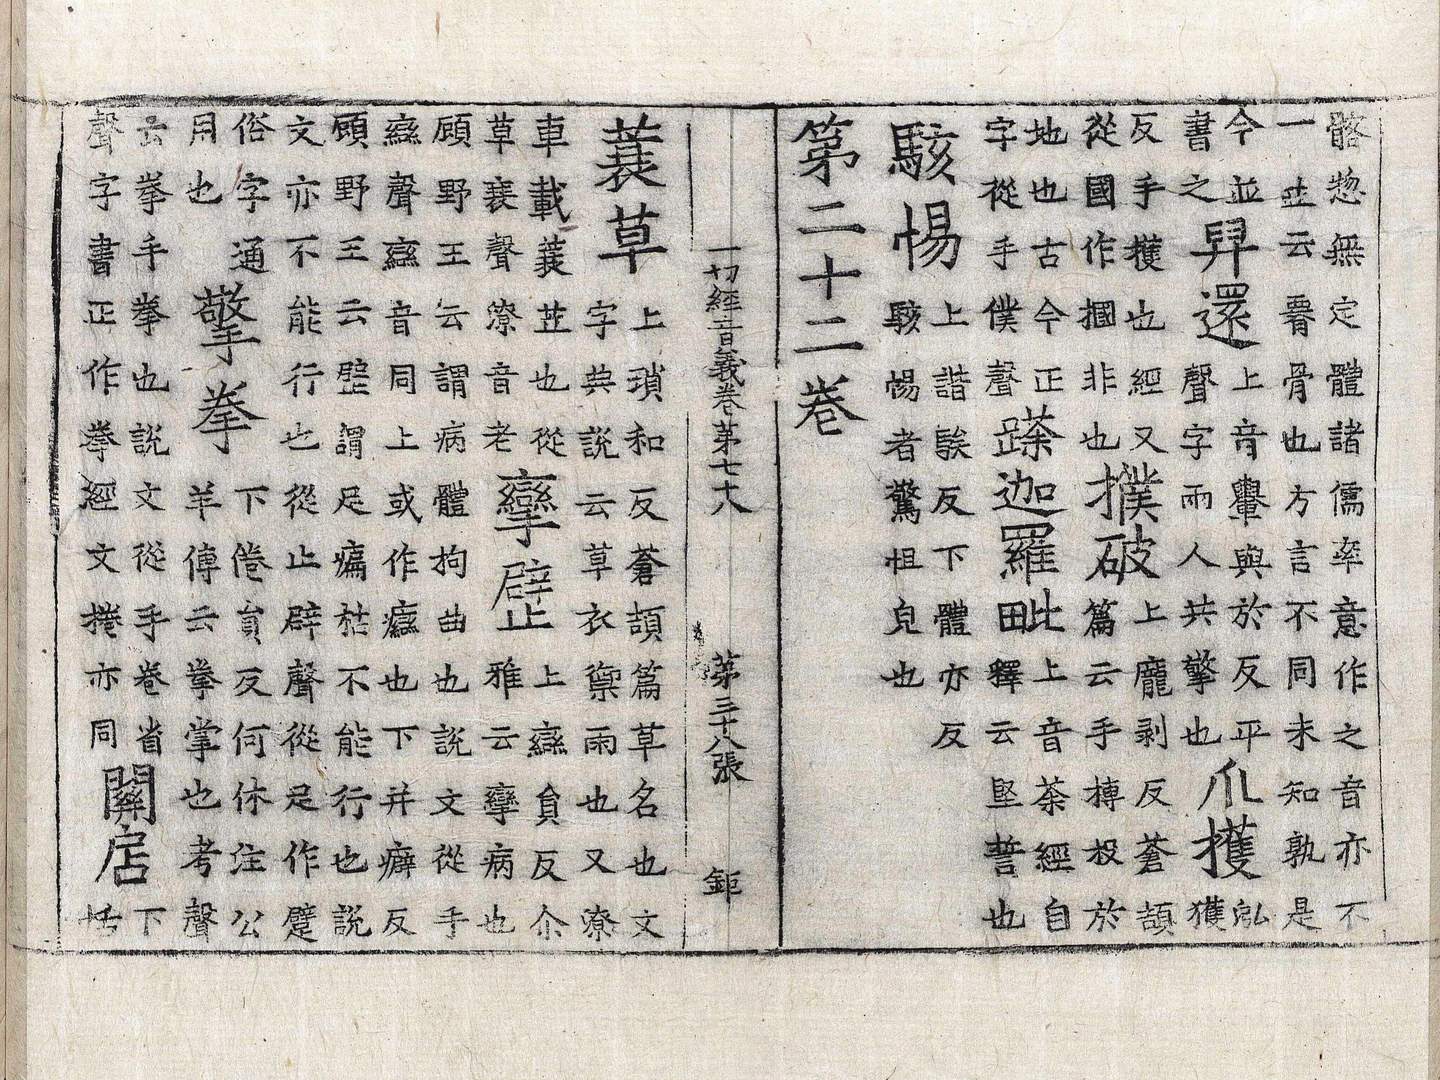 髂惣無定體諸儒率意作之音亦不
一㠯云䯊骨也方言不同未知孰是
今並
書之
舁還
上音轝與於反平
聲字兩人共擎也
爪攫
泓
獲
反手攫也經又
從國作摑非也
撲破
上龐剥反蒼頡
篇云手摶投於
地也古今正
字從手僕聲
蹂迦羅毗
上音荼經自
釋云堅誓也
駭惕
上諧駭反下體亦反
駭惕者驚怛皃也
第二十二卷
一切經音義卷第七十八 第三十八張 鉅
蓑草
上瑣和反蒼頡篇草名也文
字典說云草衣禦雨也又潦
車載蓑苙也從
草衰聲潦音老
攣躄
上戀負反尒
雅云攣病也
顧野王云謂病體拘曲也說文從手
䜌聲䜌音同上或作癵也下并癖反
顧野王云躄謂足痛枯不能行也說
文亦不能行也從止辟聲從足作躄
俗字通
用也
擎拳
下倦貟反何休注公
羊傳云拳掌也考聲
云拳手拳也說文從手卷省
聲字書正作拳經文捲亦同
關店
下
恬